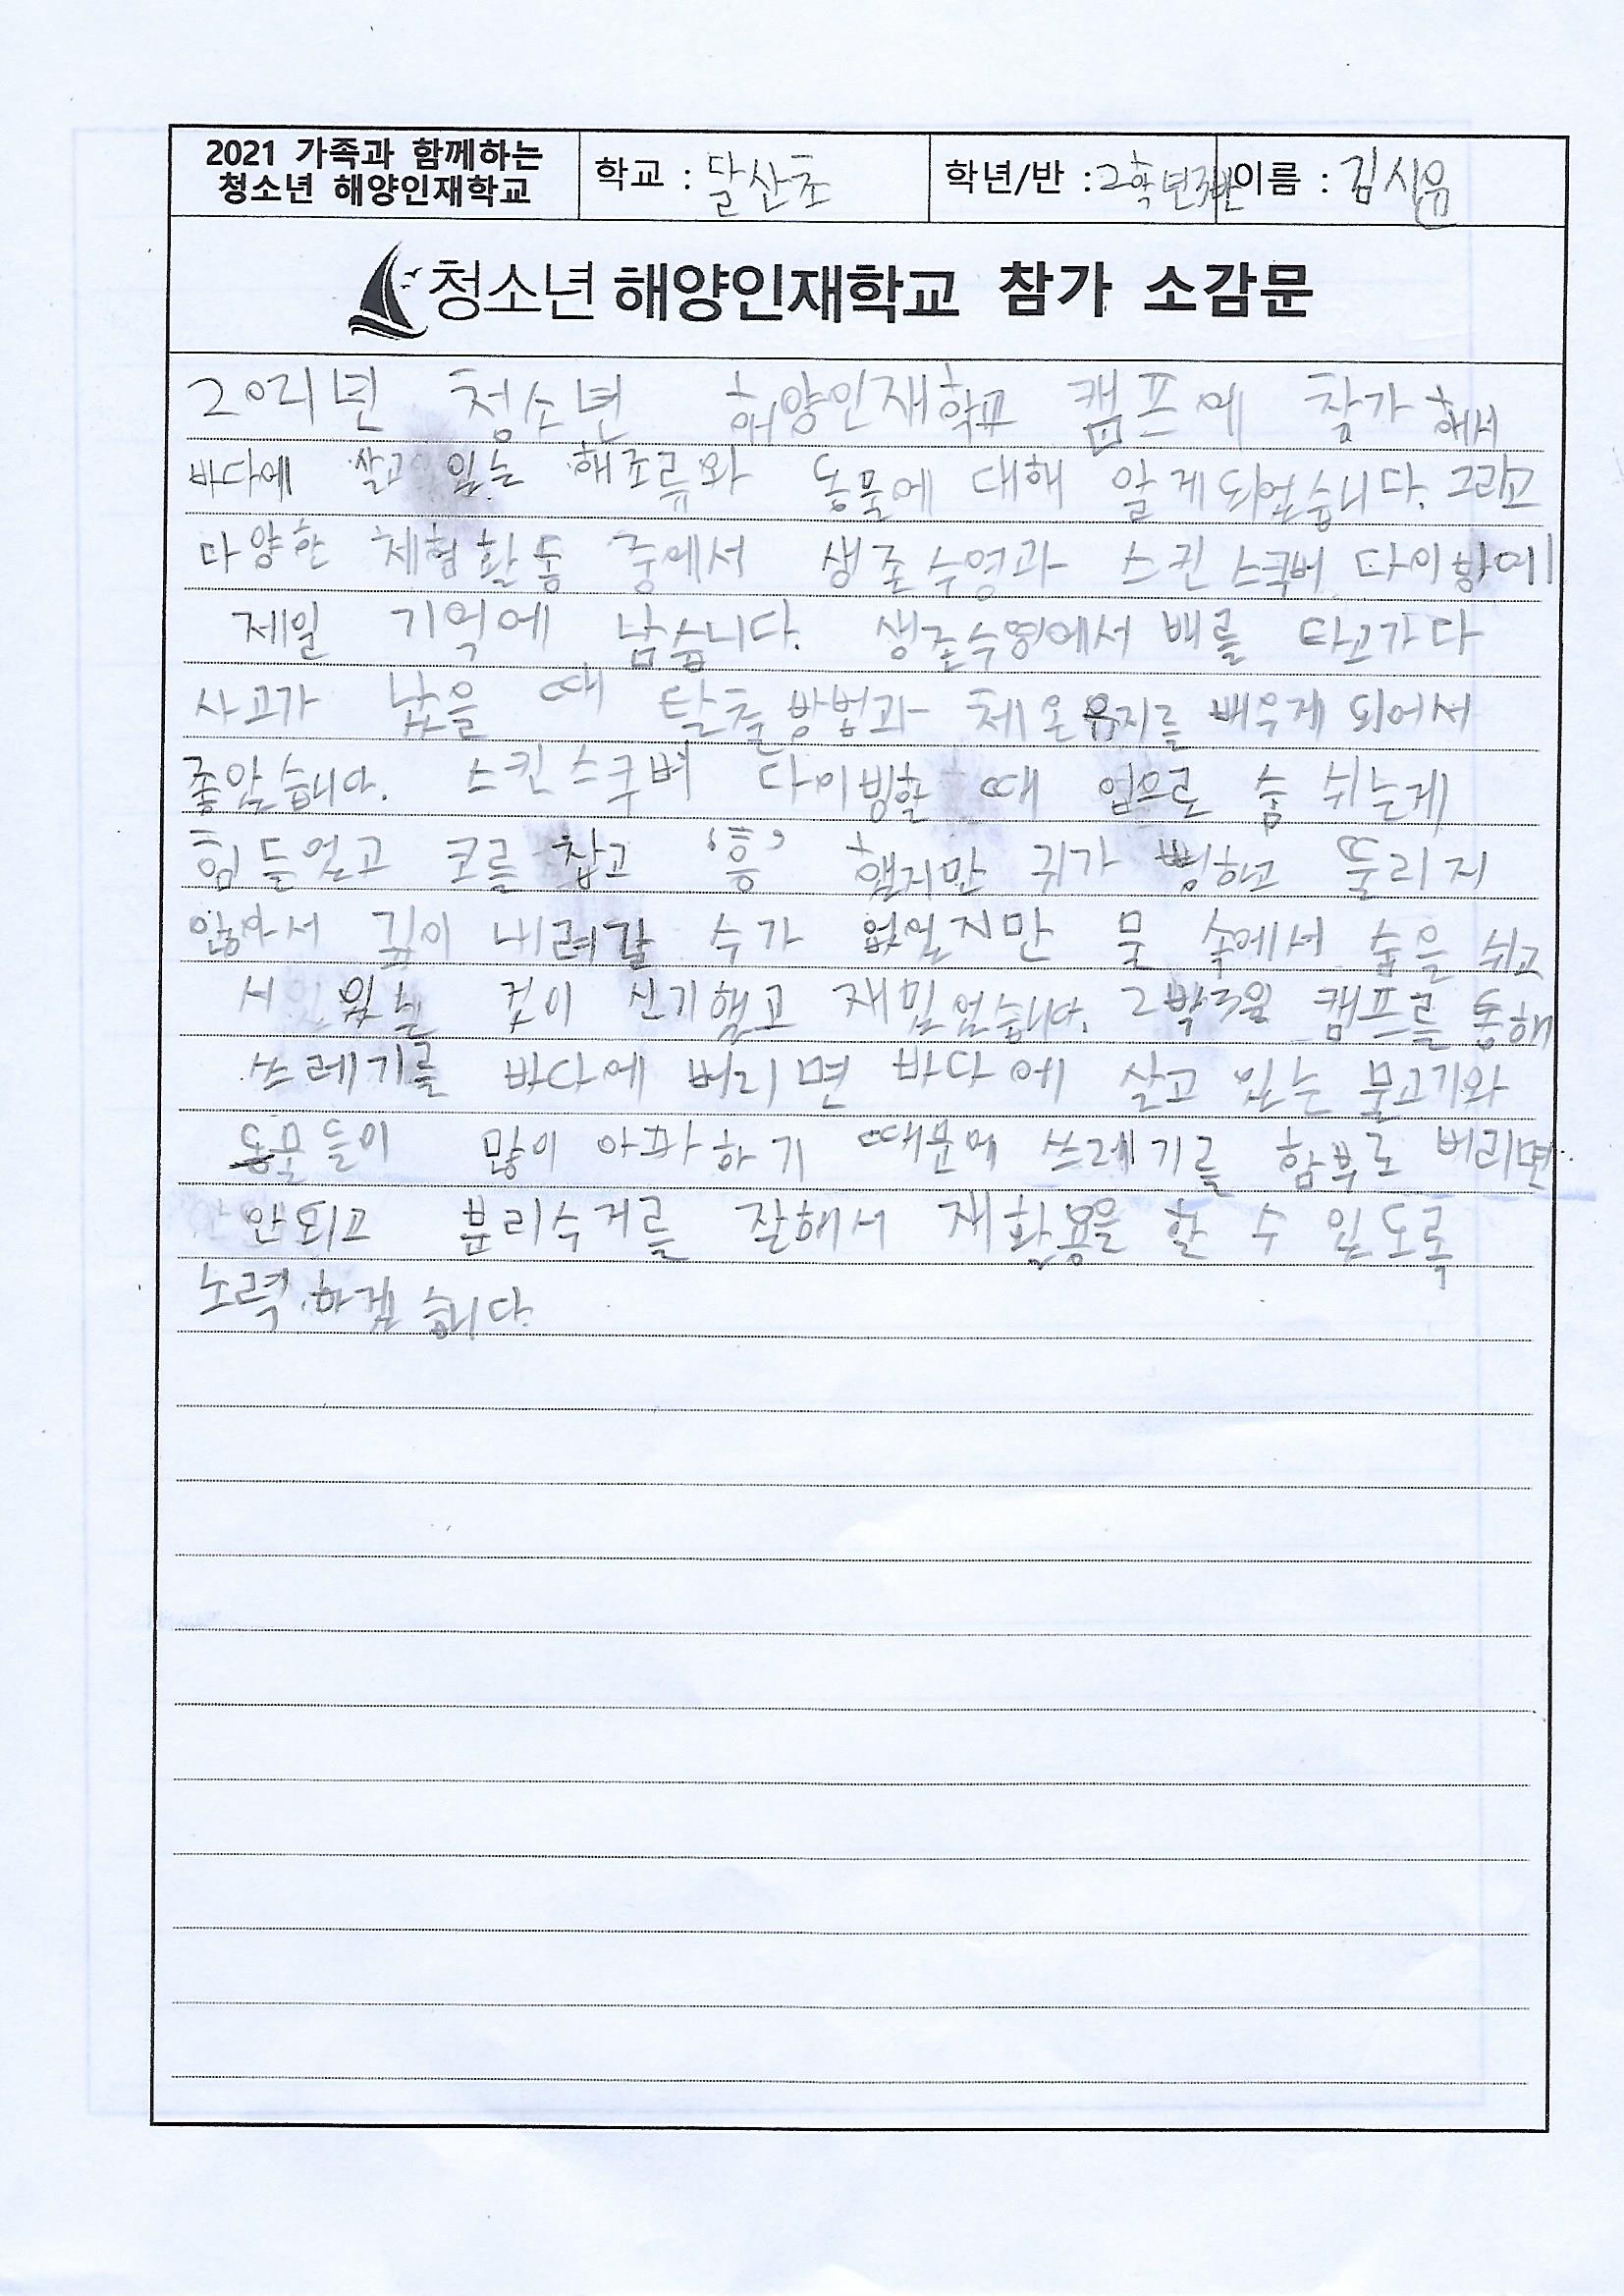 2021 가족과 함께하는
청소년 해양인재학교
학교 : 달산초
학년/반 : 2학년3반
이름 : 김시윤
청소년 해양인재학교 참가 소감문
2021년 청소년 해양인재학교 캠프에 참가해서
바다에 살고 있는 해조류와 동물에 대해 알게되었습니다. 그리고
다양한 체험활동 중에서 생존수영과 스킨스쿠버 다이빙이
제일 기억에 남습니다. 생존수영에서 배를 타고가다
사고가 났을 때 탈출방법과 체온유지를 배우게 되어서
좋았습니다. 스킨스쿠버 다이빙할 때 입으로 숨 쉬는게
힘들었고 코를 잡고 '흥' 했지만 귀가 뻥하고 뚫리지
않아서 깊이 내려갈 수가 없었지만 물 속에서 숨을 쉬고
서 있는 것이 신기했고 재밌었습니다. 2박3일 캠프를 통해
쓰레기를 바다에 버리면 바다에 살고 있는 물고기와
동물들이 많이 아파하기 때문에 쓰레기를 함부로 버리면
안되고 분리수거를 잘해서 재활용을 할 수 있도록
노력하겠습니다.